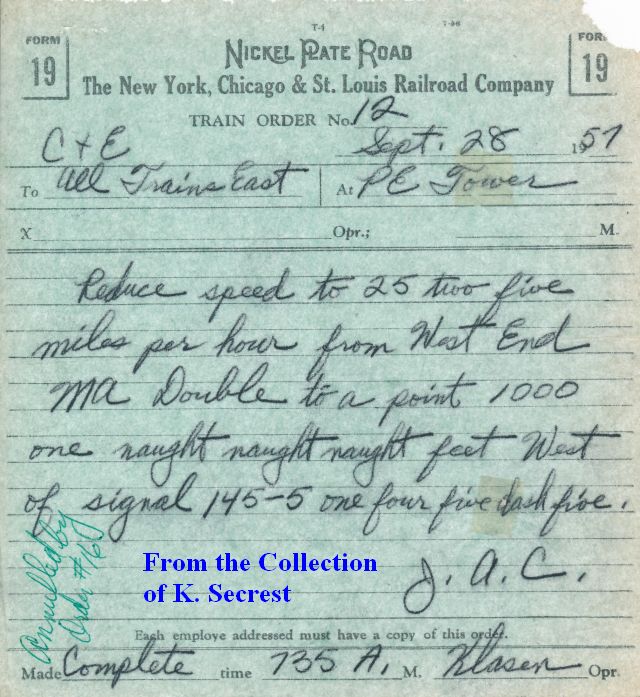 T-4 7-56
FORM 19 NICKEL PLATE ROAD FOR 19
The New York, Chicago & St. Louis Railroad Company
TRAIN ORDER No. 12
C + E Sept. 28 1957
To All Trains East At PE Tower
X Opr.; M.
Reduce speed to 25 two five
miles per hour from West End
MA Double to a point 1000
one naught naught naught feet West
of signal 145-5 one four five dash five.
J. A. C.
Annulled by
Order #16
From the Collection
of K. Secrest
Each employe addressed must have a copy of this order.
Made Complete time 735 A. M. Klasen Opr.